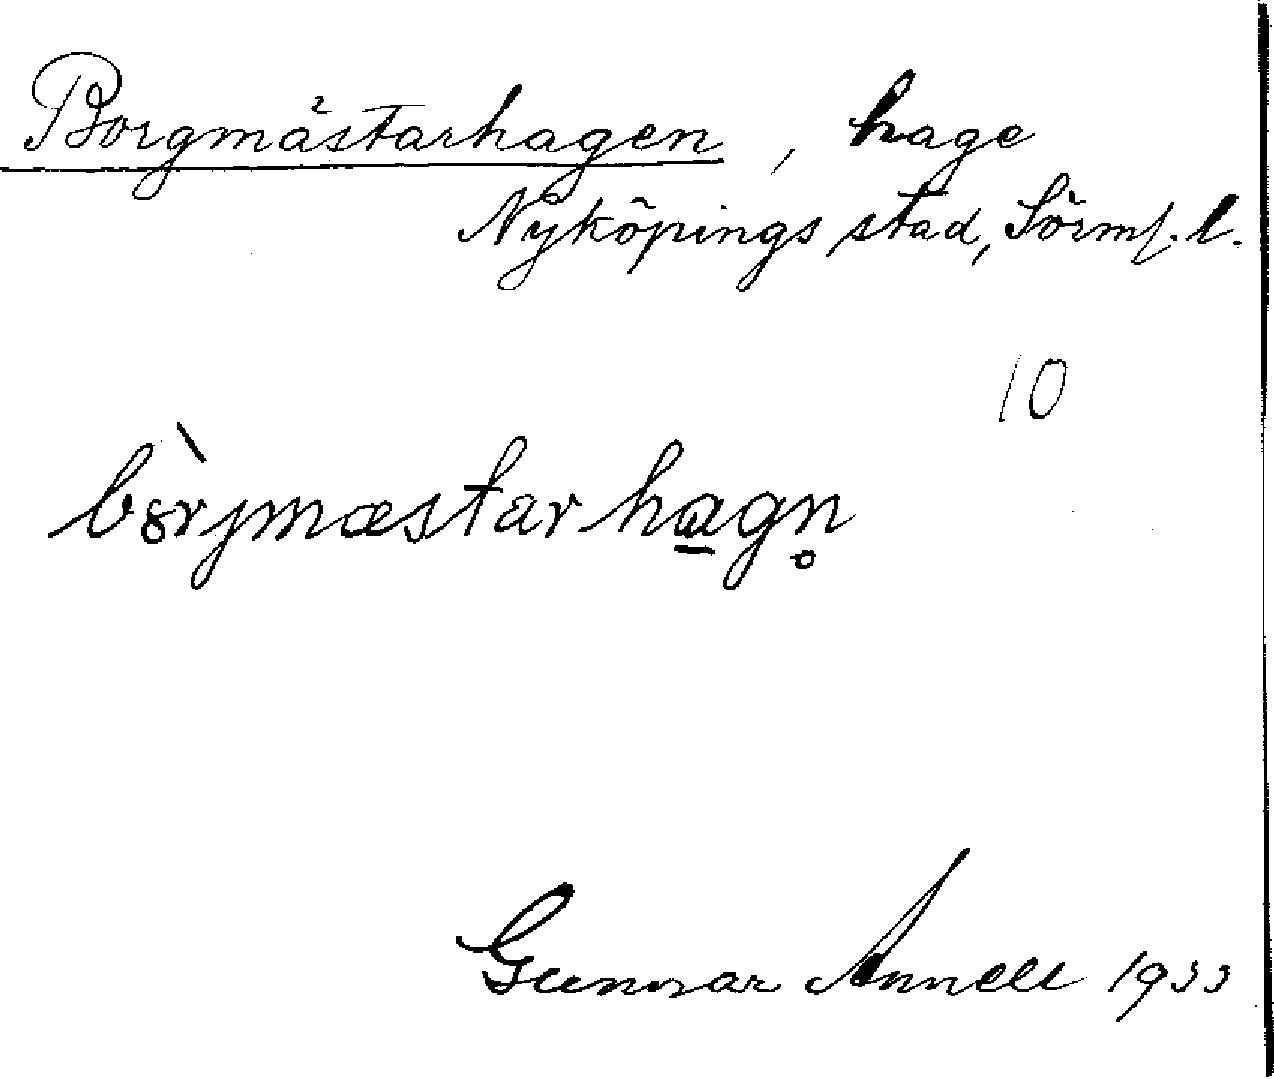 Borgmästarhagen, hage
Nyköpings stad, Sörml. l.
10
bò̀rjmæstarha̲gn̥
Gunnar Annell 1933